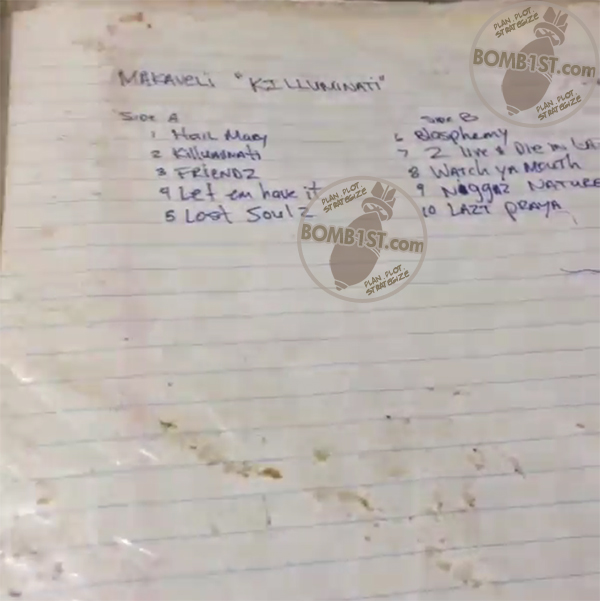 MAKAVELI "KILLUMINATI"
Side A
1 Hail Mary
2 Killuminati
3 FRIENDZ
4 Let em have it
5 Lost Soulz
Side B
6 Blasphemy
7 2 live & Die in LA
8 WATCH ya MOUTH
9 Niggaz NATURE
10 LAZT PRAYA
PLAN PLOT
STRATEGIZE
BOMB1ST.com
PLAN PLOT
STRATEGIZE
PLAN PLOT
STRATEGIZE
BOMB1ST.com
PLAN PLOT
STRATEGIZE